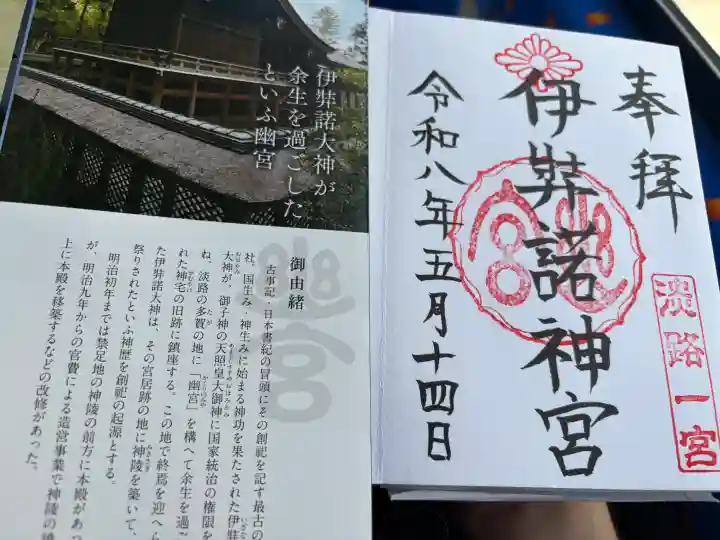 伊弉諾大神が
余生を過ごした
といふ幽宮
幽宮
御由緒
古事記・日本書紀の冒頭にその創祀を記す最古の
社。国生み・神生みに始まる神功を果たされた伊弉
大神が、御子神の天照皇大御神に国家統治の権限を
ね、淡路の多賀の地に「幽宮」を構へて余生を過ご
れた神宅の旧跡に鎮座する。この地で終焉を迎へら
た伊弉諾大神は、その宮居跡の地に神陵を築いて、
祭りされたといふ神歴を創祀の起源とする。
明治初年までは禁足地の神陵の前方に本殿があつ
が、明治九年からの官費による造営事業で神陵の
上に本殿を移築するなどの改修があった。
奉拝
淡路一宮
伊弉諾神宮
幽宮
令和八年五月十四日